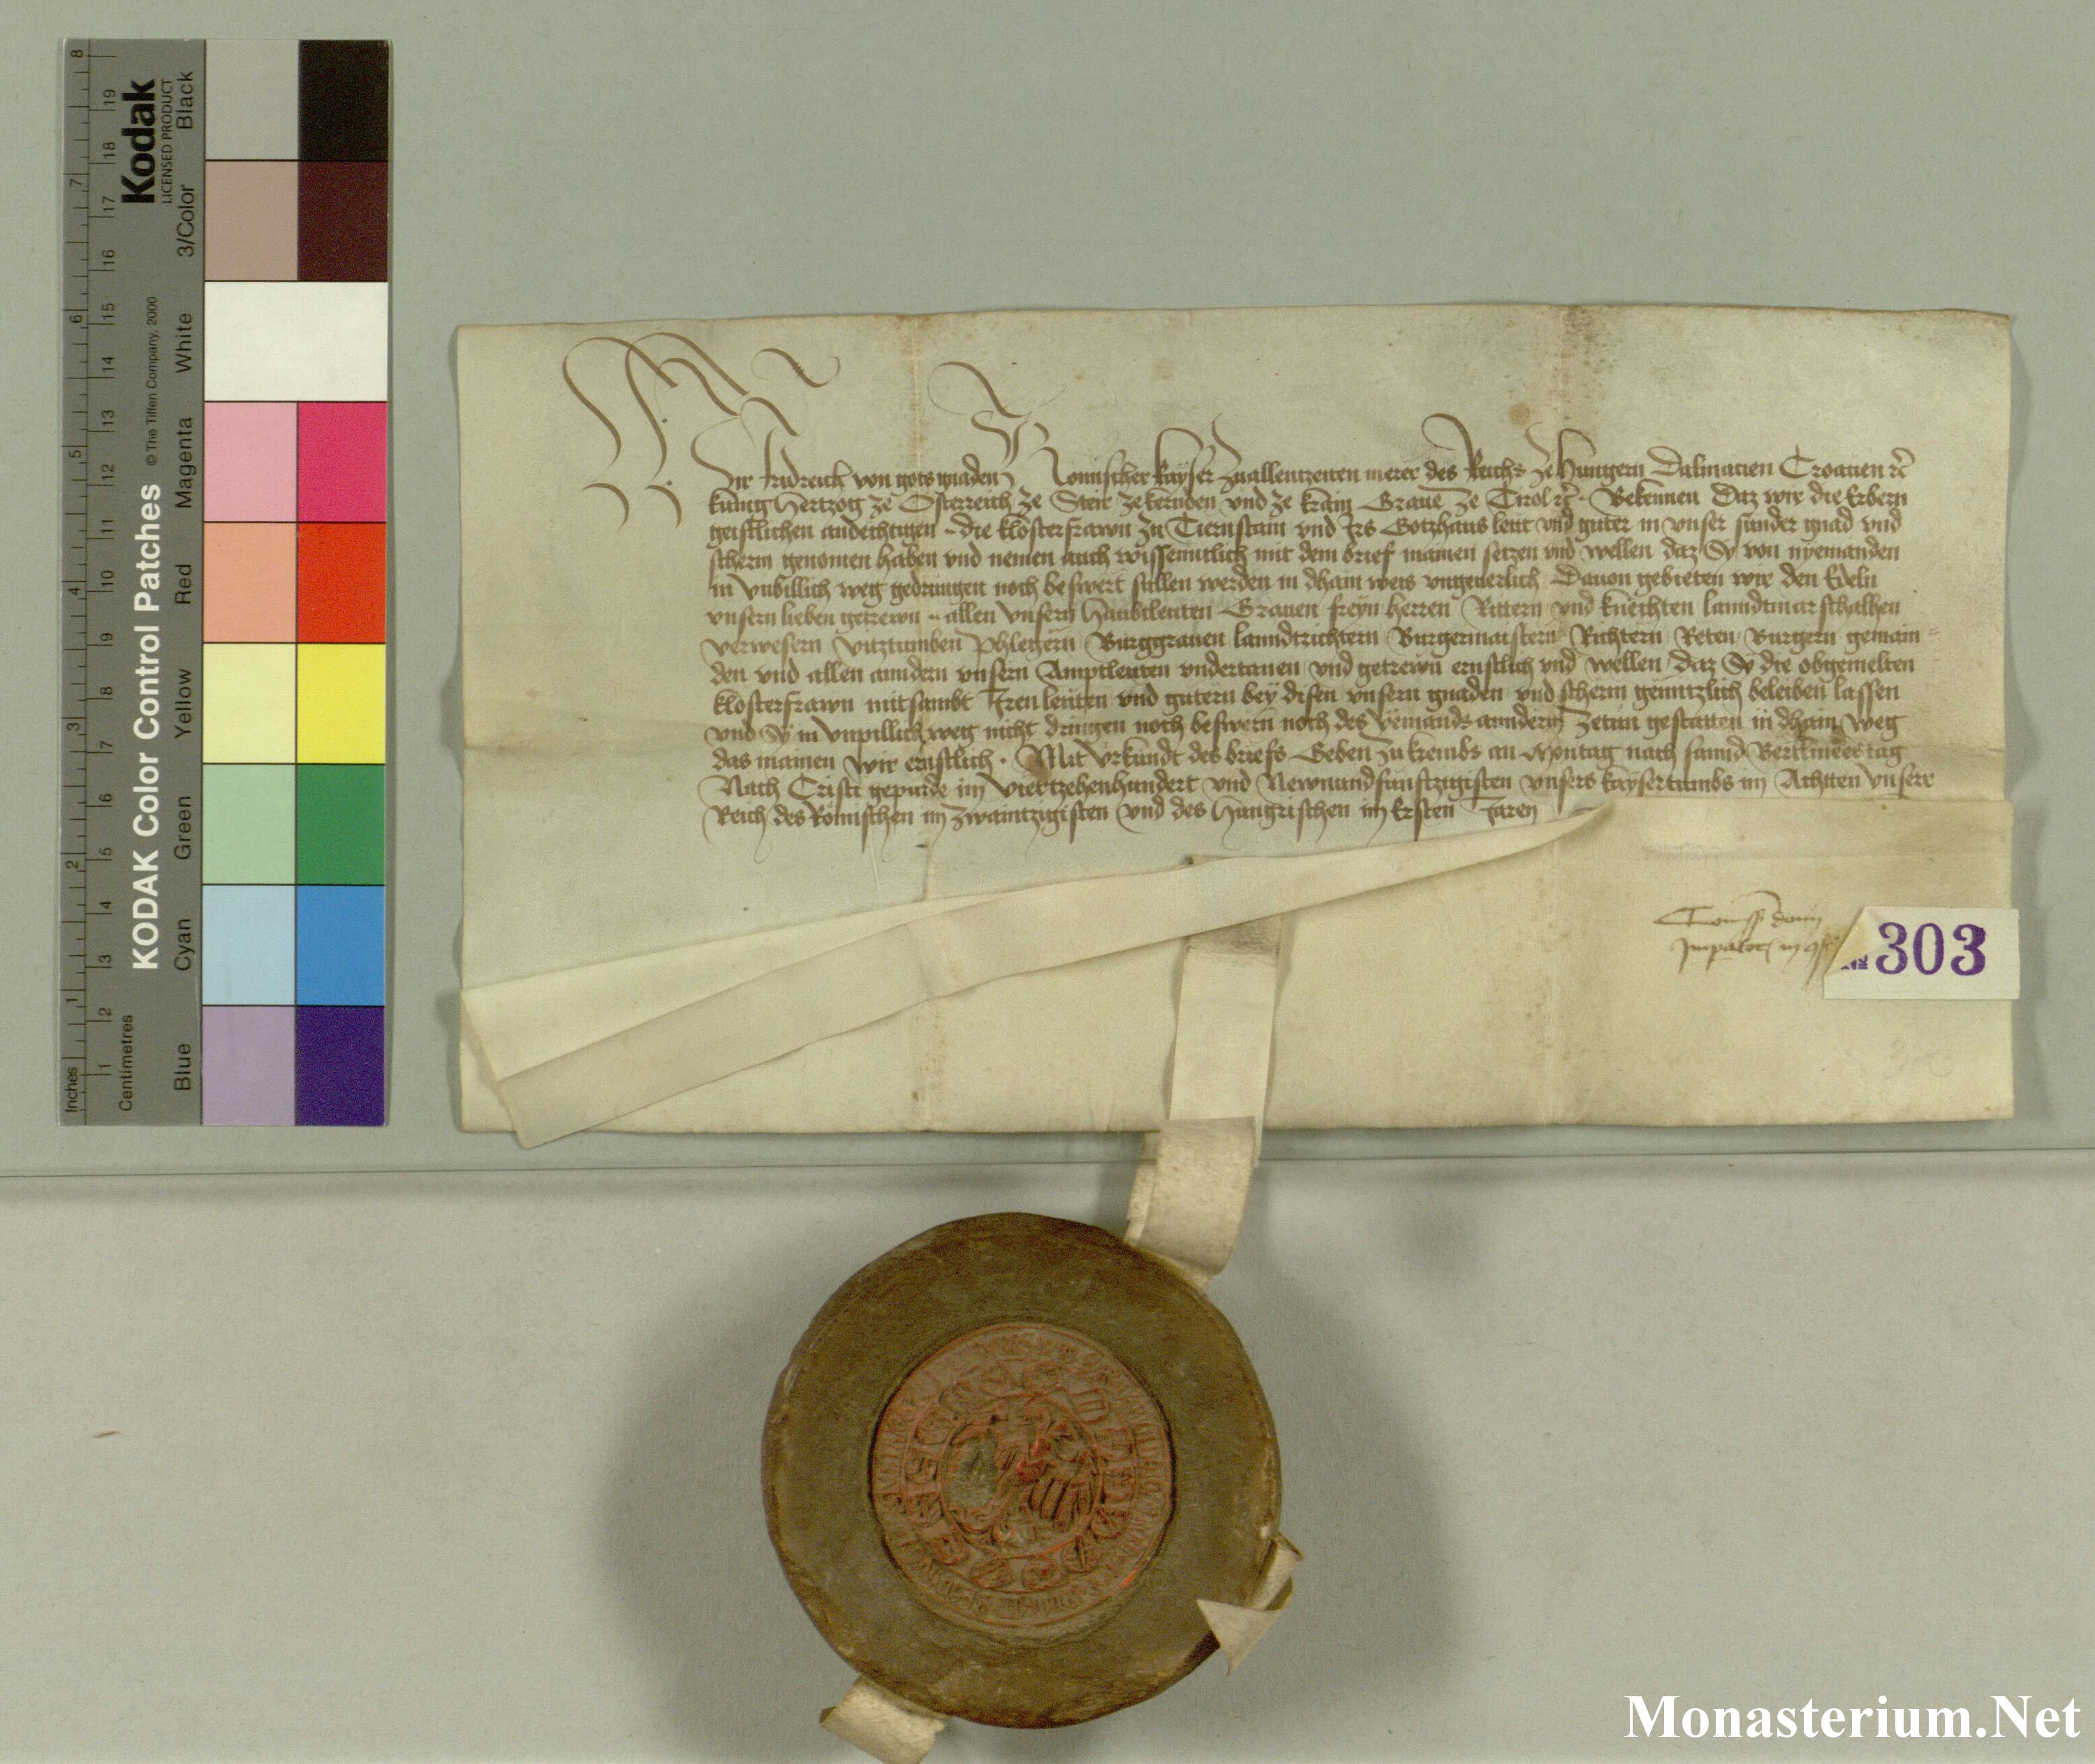 Wir Fridreich von gots gnaden Romischer kayser zuallentzeiten merer des Reichs ze Hungern Dalmacien Croacien rc̃
kunig Hertzog ze Osterreich ze Steir ze kernden vnd ze krain Graue ze Tirol rc̃. Bekennen Daz wir die Erbern
geistlichen andechtigen .. die klosterfrawn zu Tiernstain vnd Irs Gotzhaus leut vnd guter in vnser sunder gnad vnd
scherm genomen haben vnd nemen auch wissenntlich mit dem brief mainen setzen vnd wellen daz Sy von nyemanden
in vnbillich weg gedrungen noch beswert sullen werden in dhain weis vngeuerlich Dauon gebieten wir den Edeln
vnsern lieben getrewn .. allen vnsern Haubtleuten Grauen freyn herren Rittern vnd knechten lanndtmarschalhen
verwesern vitztumben phlegern Burggrauen lanndtrichtern Burgermaistern Richtern Reten Burgern gemain=
den vnd allen anndern vnsern Amptleuten vndertanen vnd getrewn ernstlich vnd wellen daz Sy die obgemelten
klosterfrawn mitsambt Iren leuten vnd gutern bey disen vnsern gnaden vnd scherm genntzlich beleiben lassen
vnd Sy in vnpillich weg nicht dringen noch beswern noch des yemands anndern zetun gestatten in dhain weg
das mainen wir ernstlich. Mit vrkundt des briefs Geben zu krembs an Montag nach sannd Bertlmees tag
Nach Cristi gepurde im viertzehenhundert vnd Newnundfunftzigisten vnsers kaysertumbs im Achtten vnserr
Reich des Romischen im zwaintzigisten vnd des Hungrischen im Ersten Jaren
№ 303
KODAK Color Control Patches
© The Tiffen Company, 2000
Kodak
LICENSED PRODUCT
Inches 1 2 3 4 5 6 7 8
Centimetres 1 2 3 4 5 6 7 8 9 10 11 12 13 14 15 16 17 18 19
Blue Cyan Green Yellow Red Magenta White 3/Color Black
Monasterium.Net